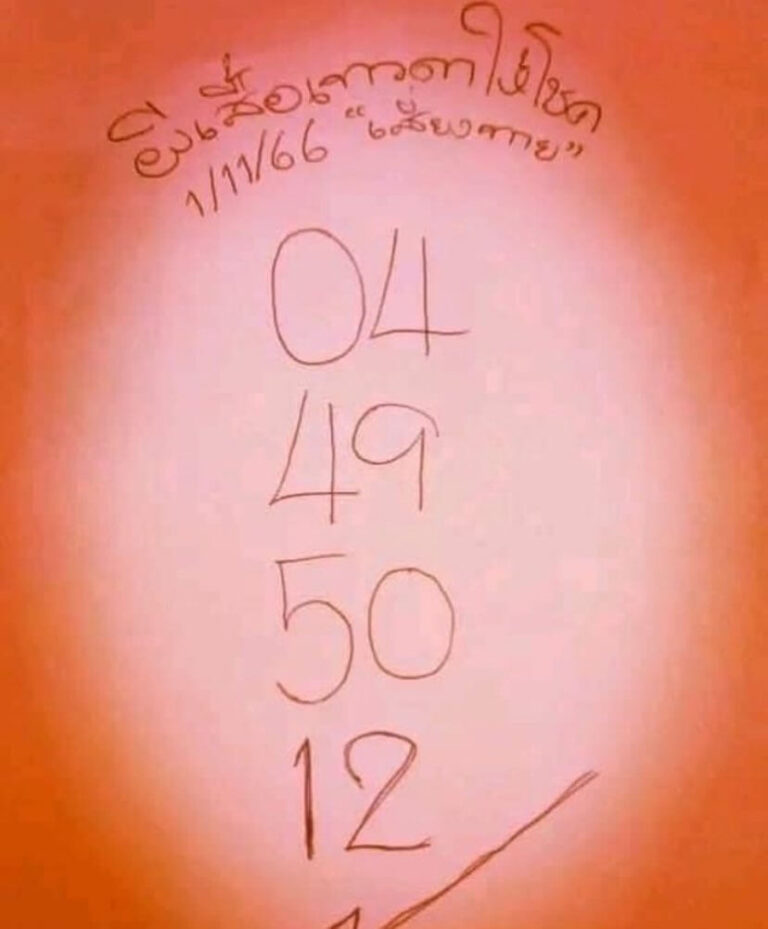 ผีเสื้อเทวดาให้โชค
1/11/66 "เสี่ยงทาย"
04
49
50
12